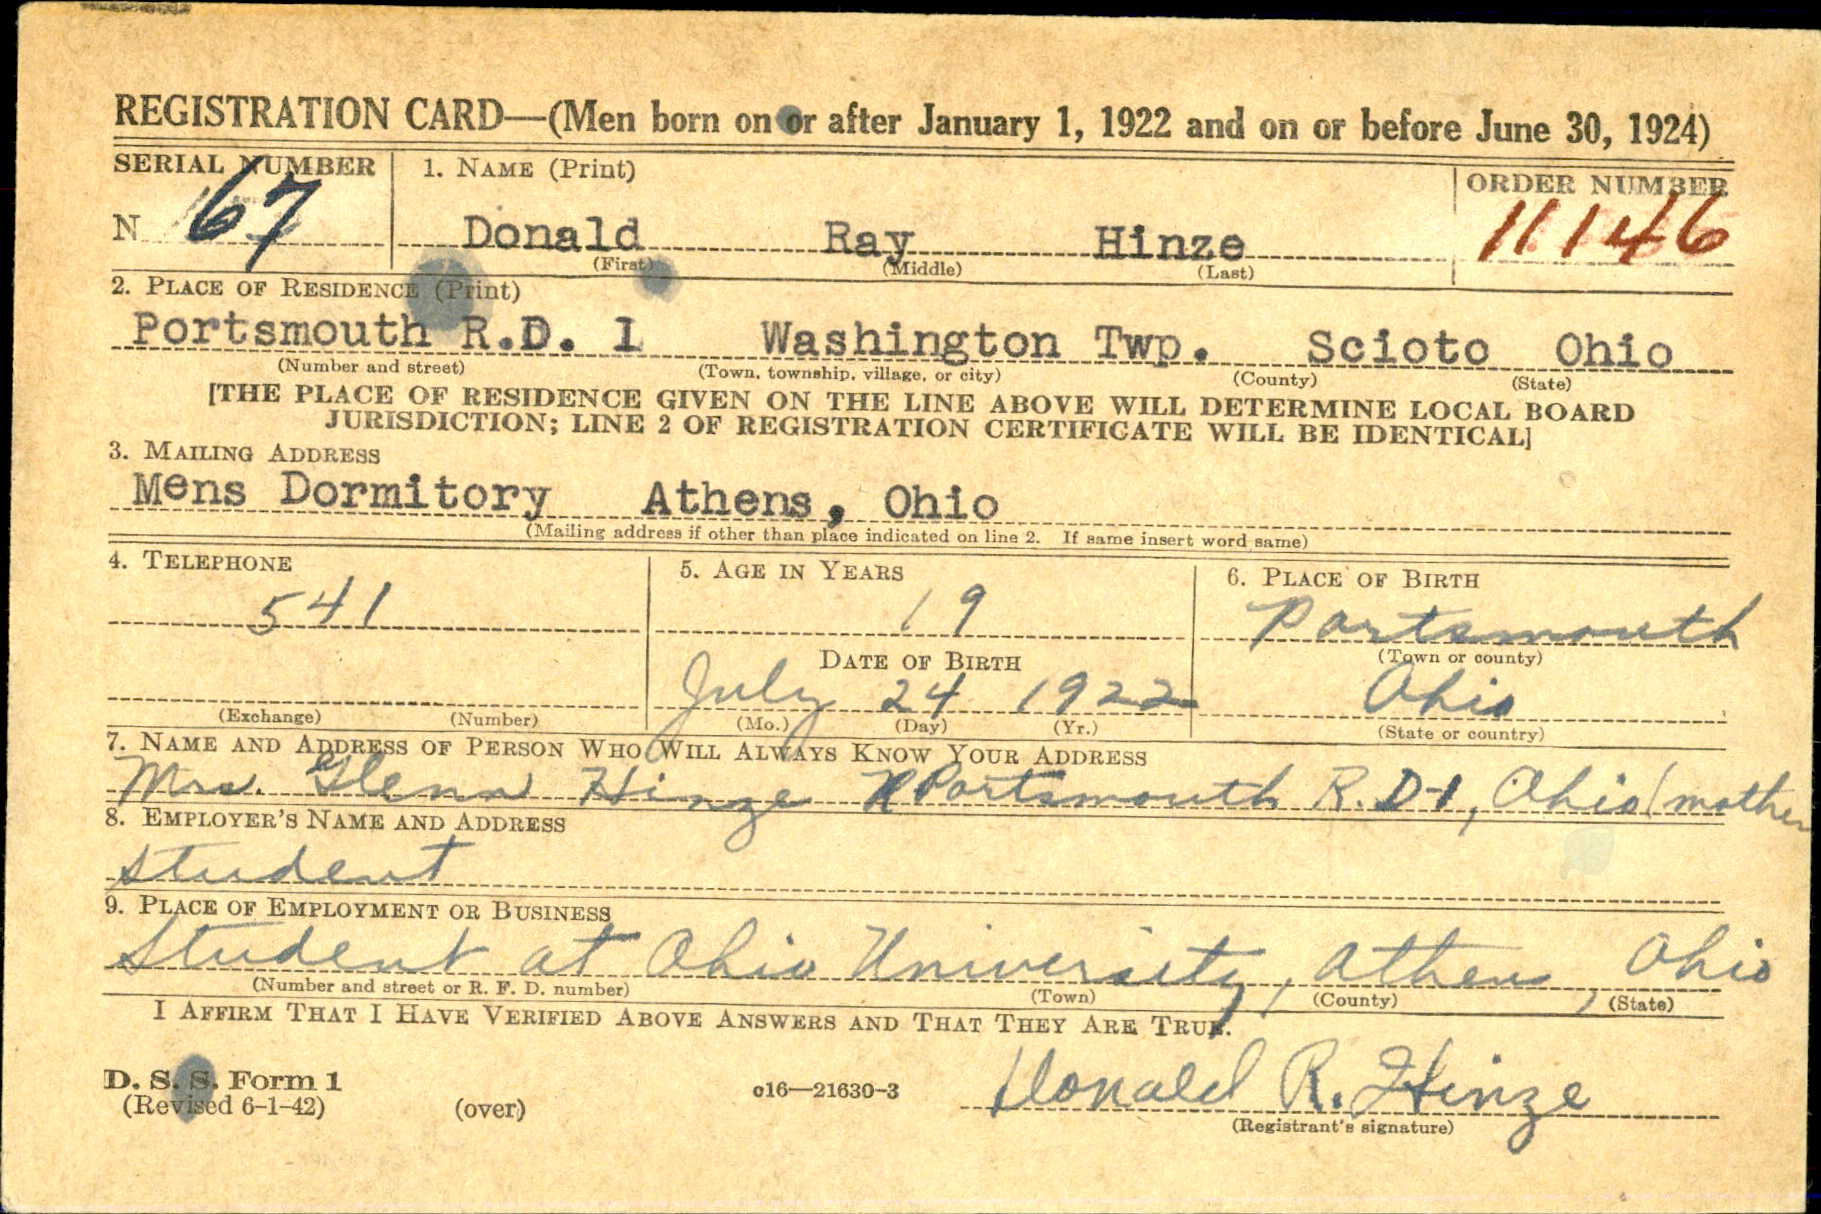 REGISTRATION CARD—(Men born on or after January 1, 1922 and on or before June 30, 1924)
SERIAL NUMBER 1. NAME (Print) ORDER NUMBER
N 67 Donald Ray Hinze 11146
(First) (Middle) (Last)
2. PLACE OF RESIDENCE (Print)
Portsmouth R.D. 1 Washington Twp. Scioto Ohio
(Number and street) (Town, township, village, or city) (County) (State)
[THE PLACE OF RESIDENCE GIVEN ON THE LINE ABOVE WILL DETERMINE LOCAL BOARD
JURISDICTION; LINE 2 OF REGISTRATION CERTIFICATE WILL BE IDENTICAL]
3. MAILING ADDRESS
Mens Dormitory Athens, Ohio
(Mailing address if other than place indicated on line 2. If same insert word same)
4. TELEPHONE 5. AGE IN YEARS 6. PLACE OF BIRTH
541 19 Portsmouth
DATE OF BIRTH (Town or county)
July 24 1922 Ohio
(Exchange) (Number) (Mo.) (Day) (Yr.) (State or country)
7. NAME AND ADDRESS OF PERSON WHO WILL ALWAYS KNOW YOUR ADDRESS
Mrs. Glenn Hinze Portsmouth R.D-1, Ohio (mother
8. EMPLOYER'S NAME AND ADDRESS
student
9. PLACE OF EMPLOYMENT OR BUSINESS
Student at Ohio University, Athens, Ohio
(Number and street or R. F. D. number) (Town) (County) (State)
I AFFIRM THAT I HAVE VERIFIED ABOVE ANSWERS AND THAT THEY ARE TRUE.
D. S. S. Form 1
(Revised 6-1-42) (over) c16—21630-3 Donald R. Hinze
(Registrant's signature)